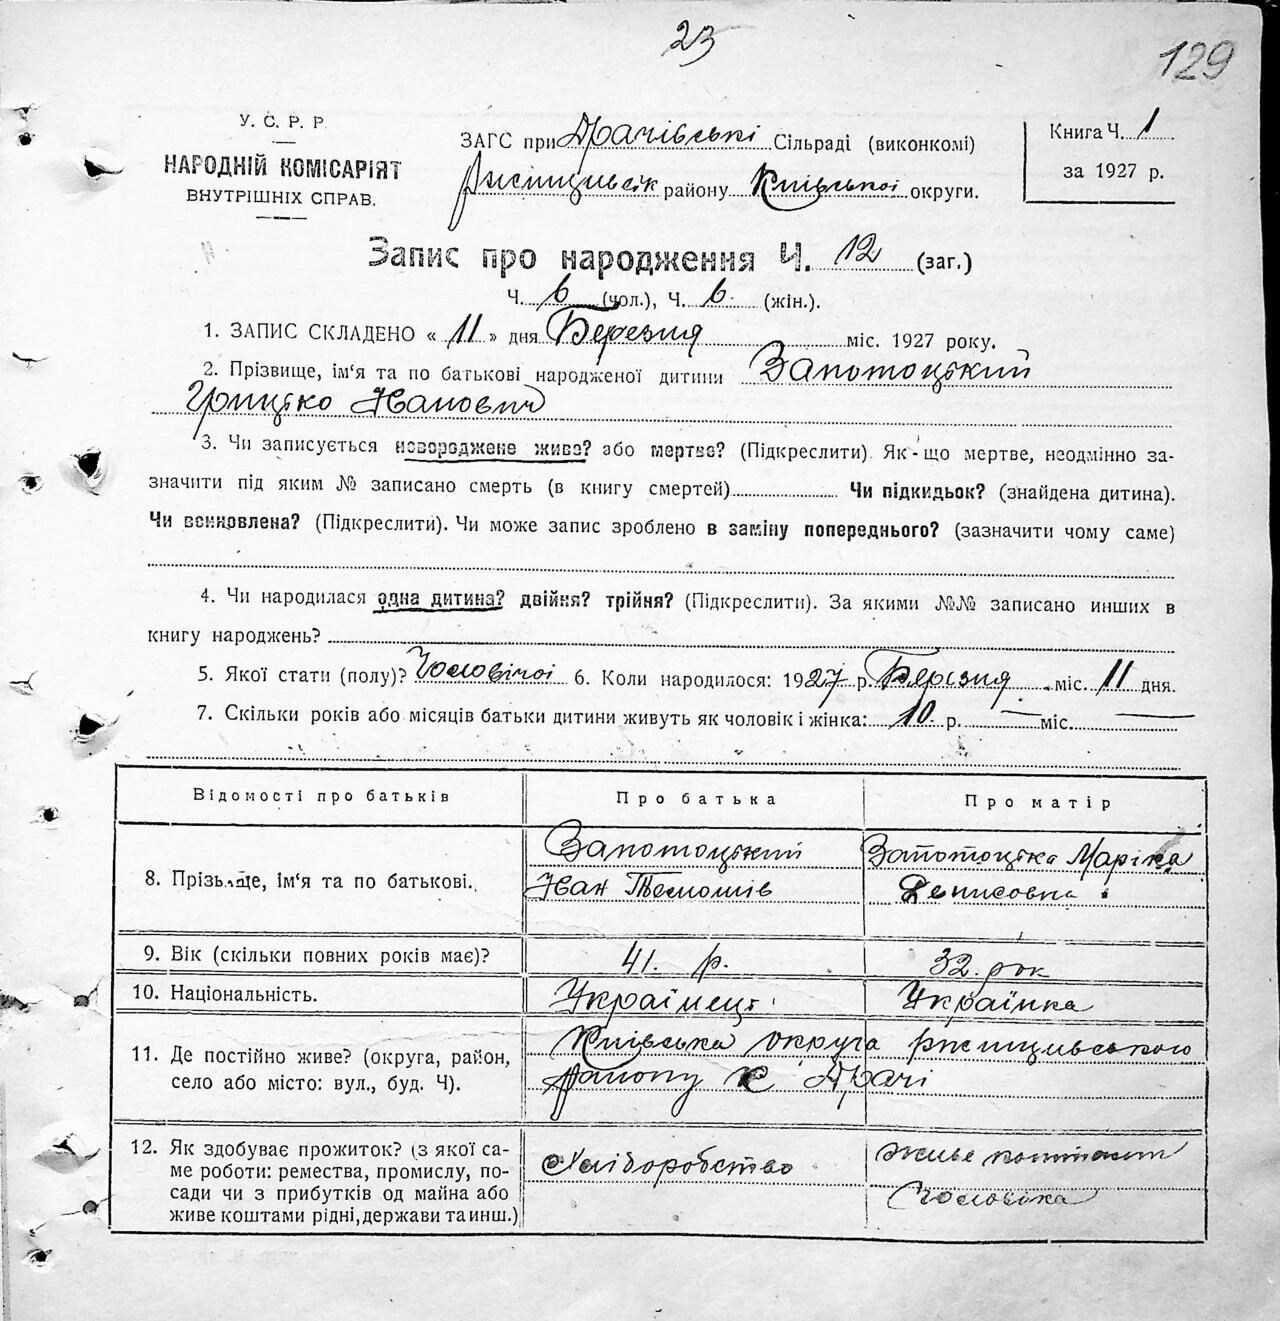 23
129
У. С. Р. Р.
НАРОДНІЙ КОМІСАРІЯТ
ВНУТРІШНІХ СПРАВ.
ЗАГС при Драчівські Сільраді (виконкомі)
району Київської округи.
Книга Ч. 1
за 1927 р.
Запис про народження Ч. 12 (заг.)
Ч. 6 (чол.), Ч. 6. (жін.).
1. ЗАПИС СКЛАДЕНО « 11 » дня Березня міс. 1927 року.
2. Прізвище, ім'я та по батькові народженої дитини Запотоцький
Грицько Іванович
3. Чи записується новороджене живе? або мертве? (Підкреслити). Як-що мертве, неодмінно за-
значити під яким № записано смерть (в книгу смертей) Чи підкидьок? (знайдена дитина).
Чи всиновлена? (Підкреслити). Чи може запис зроблено в заміну попереднього? (зазначити чому саме)
4. Чи народилася одна дитина? двійня? трійня? (Підкреслити). За якими №№ записано инших в
книгу народжень?
5. Якої стати (полу)? Чоловічої 6. Коли народилося: 1927 р. Березня міс. 11 дня.
7. Скільки років або місяців батьки дитини живуть як чоловік і жінка: 10 р. — міс. —
Відомості про батьків Про батька Про матір
8. Прізвище, ім'я та по батькові. Запотоцький Запотоцька Маріка
Іван Денисовна
9. Вік (скільки повних років має)? 41. р. 32. рок
10. Національність. Українець Українка
11. Де постійно живе? (округа, район, Київська округа ржищивського
село або місто: вул., буд. Ч). району с Драчі
12. Як здобуває прожиток? (з якої са-
ме роботи: ремества, промислу, по- Хліборобство живе коштами
сади чи з прибутків од майна або чоловіка
живе коштами рідні, держави та инш.)